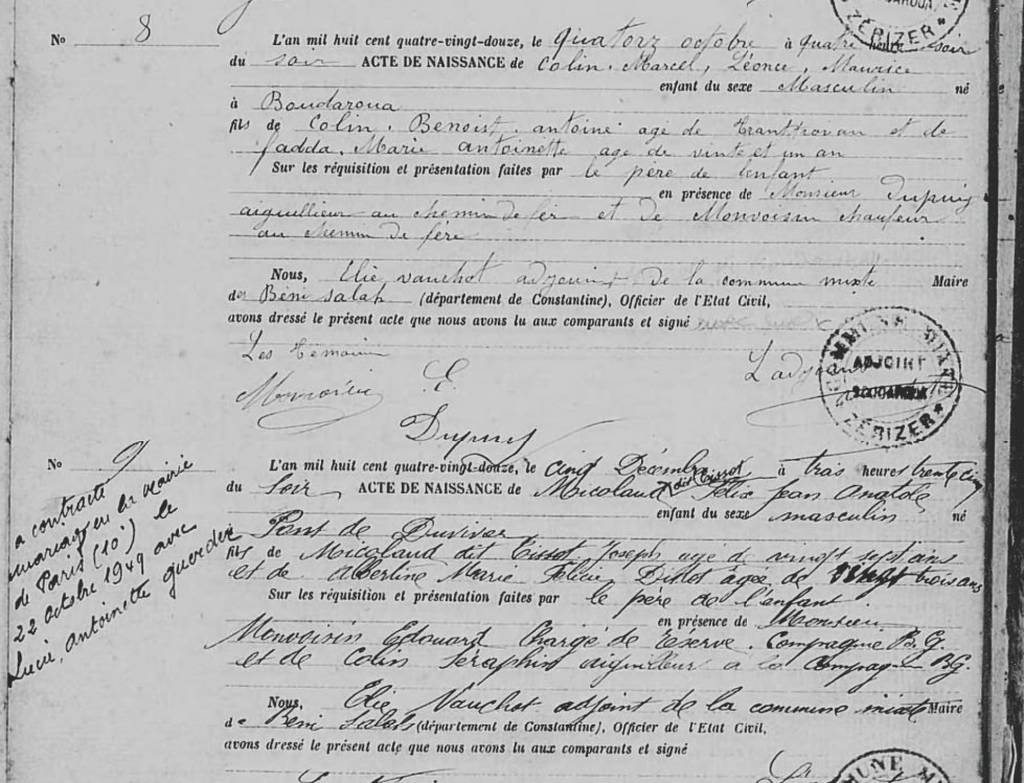 No 8
L'an mil huit cent quatre-vingt-douze, le quatorz octobre à quatre heure soir
du soir ACTE DE NAISSANCE de Colin. Marcel, Léonce, Maurice
enfant du sexe Masculin né
à Boudaroua
fils de Colin. Benoist. antoine age de et de
fadda. Marie antoinette age de vinte et un an
Sur les réquisition et présentation faites par le père de lenfant
en présence de Monsieur Dupuis
aiguillieur au chemin de fér et de Monvoisin chaufeur
au chemin de fére
Nous, Elie vauchot adjoint de la commune mixte Maire
de Béni Salah (département de Constantine), Officier de l'Etat Civil,
avons dressé le présent acte que nous avons lu aux comparants et signé
Les temoins
L'adjoint
ADJOINT
ZÉRIZER
Dupuy
No 9
a contracté
mariage en la mairie
de Paris (10e) le
22 octobre 1949 avec
Lucie, antoinette
L'an mil huit cent quatre-vingt-douze, le cinq Décembre à trois heures trente cinq
du Soir ACTE DE NAISSANCE de Micolaud dit Tissot Félix Jean Anatole
enfant du sexe masculin né
à Pont de Duvivier
fils de Micolaud dit Tissot Joseph agé d vingt sept ans
et de Albertine Marie agée de vingt trois ans
Sur les réquisition et présentation faites par le père de l'enfant
en présence de Monsieur
Monvoisin Edouard Chargé de réserve. Compagnie B. G.
et de Colin Séraphin à la Compagnie BG.
Nous, Elie Vauchot adjoint de la commune mixte Maire
de Beni Salah (département de Constantine), Officier de l'Etat Civil,
avons dressé le présent acte que nous avons lu aux comparants et signé